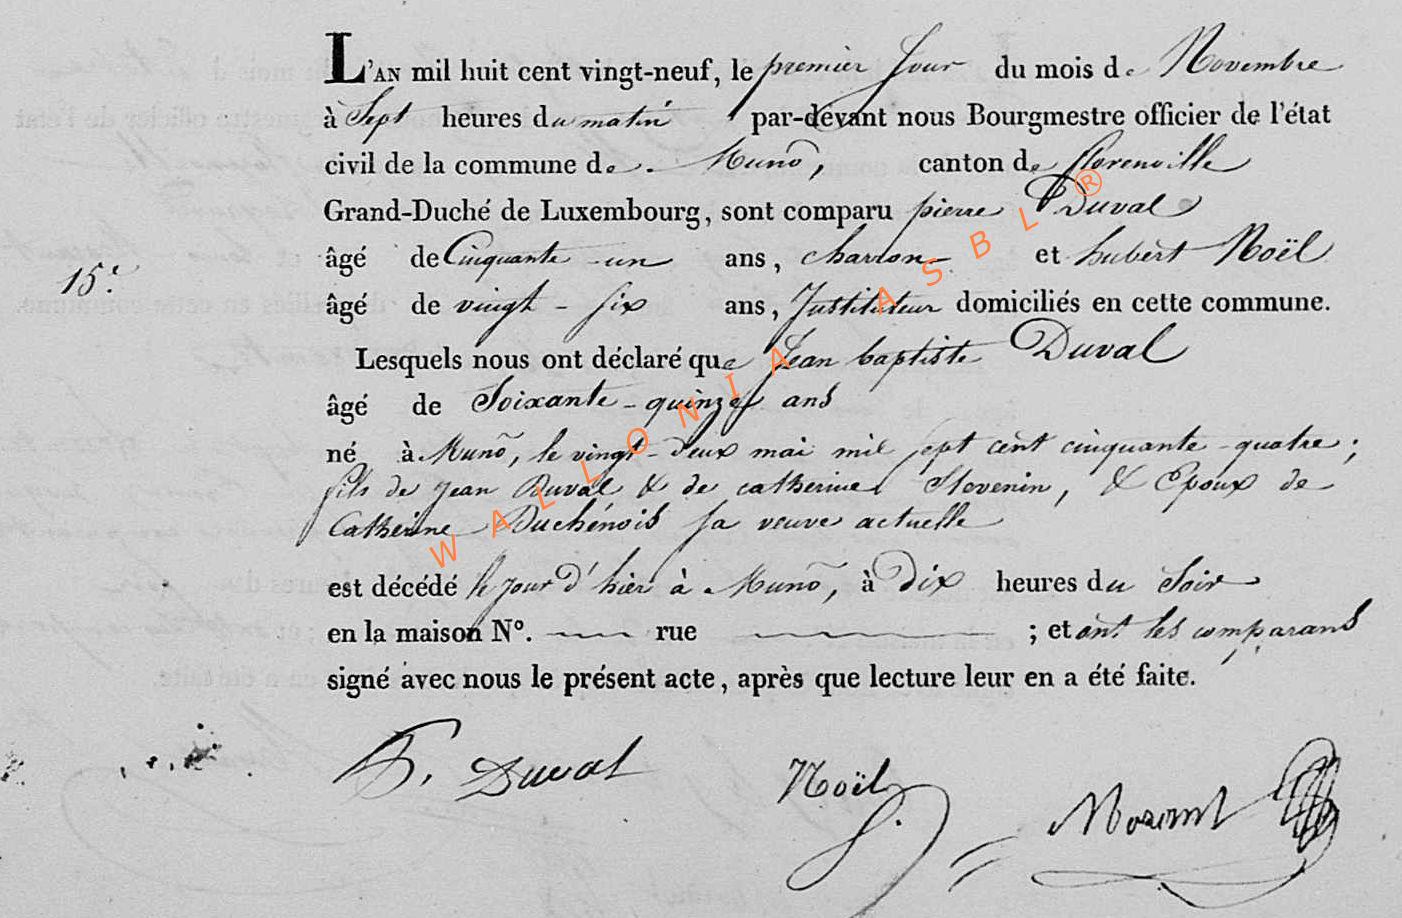 L'AN mil huit cent vingt-neuf, le premier Jour du mois de Novembre
à Sept heures du matin par-devant nous Bourgmestre officier de l'état
civil de la commune de Muno, canton de florenville
Grand-Duché de Luxembourg, sont comparu pierre Duval
âgé de Cinquante-un ans, charron et hubert Noël
15e.
âgé de vingt-six ans, Instituteur domiciliés en cette commune.
Lesquels nous ont déclaré que Jean baptiste Duval
âgé de Soixante-quinze ans
né à Muno, le vingt-deux mai mil sept cent cinquante-quatre;
fils de Jean Duval & de catherine Stevenin, & Epoux de
Catherine Duchénois sa veuve actuelle
est décédé le jour d'hier à Muno, à Dix heures du Soir
en la maison No. rue ; et ont les comparans
signé avec nous le présent acte, après que lecture leur en a été faite.
P. Duval Noël
WALLONIA ASBL ®